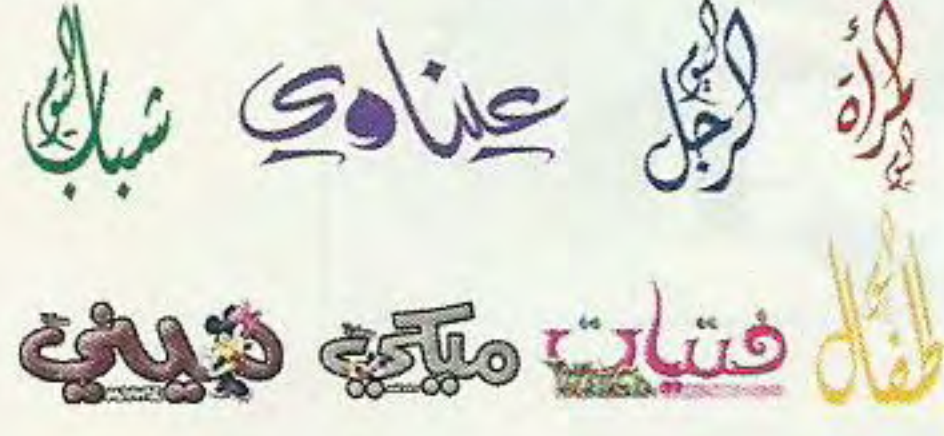 المرأة اليوم
الرجل اليوم
عيناوي
شباب اليوم
أطفال اليوم
فتيات
ميكي
ميني